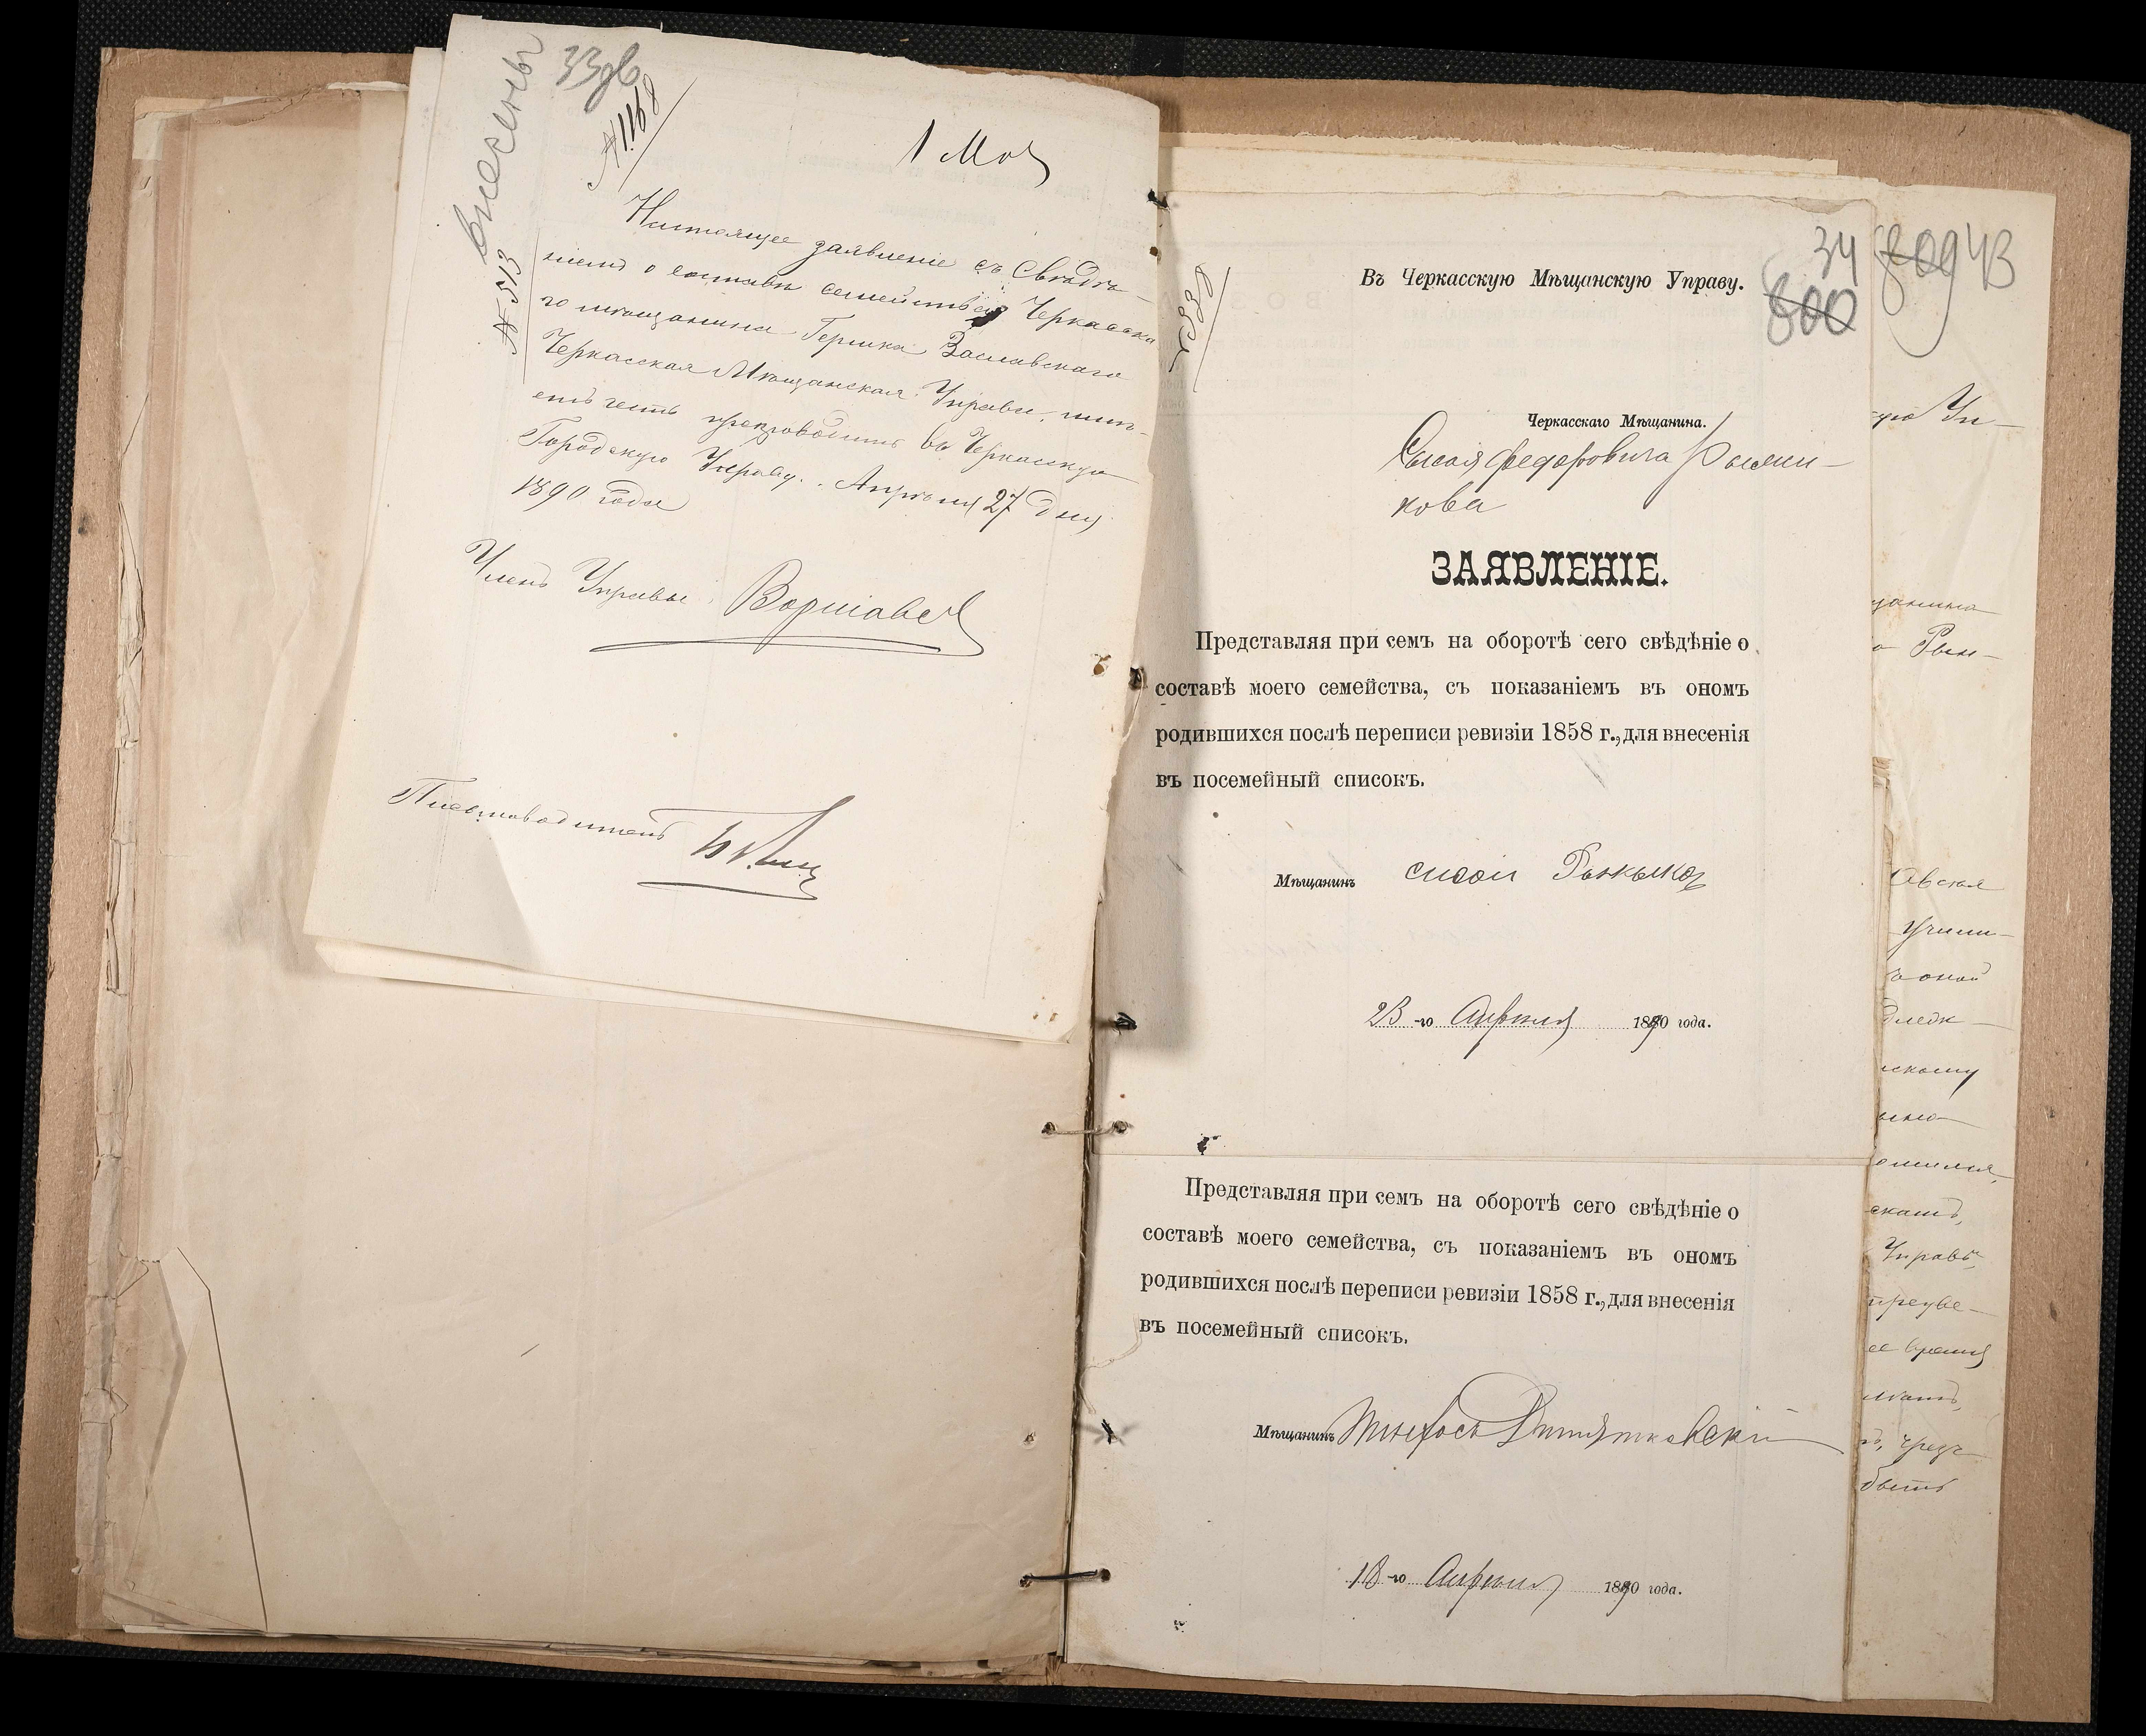 внесены
33об
№ 1168
1 Мая
№ 513
Настоящее заявление съ Свѣдѣ-
ніемъ о составѣ семейства Черкасска
го мѣщанина Гершка Заславскаго
Черкасская Мѣщанская Управа, имѣ-
етъ честь препроводить въ Черкасскую
Городскую Управу. Апрѣля 27 дня
1890 года
Членъ Управы Варшавск
Письмоводитель
34
800
809 43
Въ Черкасскую Мѣщанскую Управу.
Черкасскаго Мѣщанина.
Сысоя Федоровича
кова
ЗАЯВЛЕНІЕ.
Представляя при семъ на оборотѣ сего свѣдѣніе о
составѣ моего семейства, съ показаніемъ въ ономъ
родившихся послѣ переписи ревизіи 1858 г., для внесенія
въ посемейный списокъ.
Мѣщанинъ сисои
23-го Апрѣля 1890 года.
Представляя при семъ на оборотѣ сего свѣдѣніе о
составѣ моего семейства, съ показаніемъ въ ономъ
родившихся послѣ переписи ревизіи 1858 г., для внесенія
въ посемейный списокъ.
Мѣщанинъ
18-го Апрѣля 1890 года.
ую Уп-
щанина
овская
учили-
оной
скому
Управы
время
чрезъ
быть